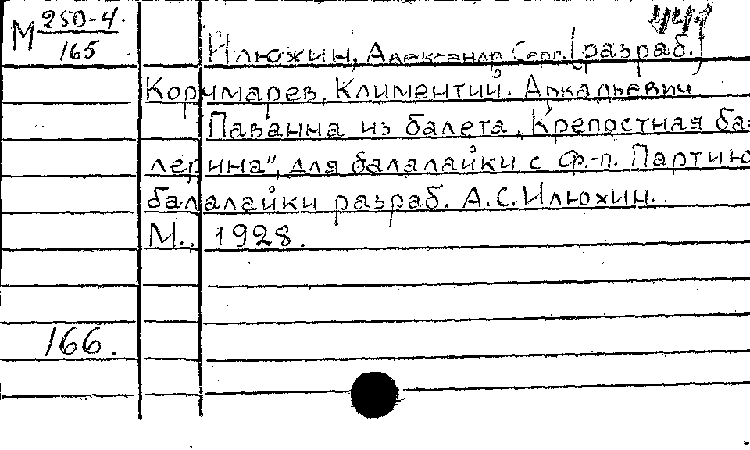 М 250-4
165
441
Илюхин, Александр Серг. [разраб.]
Корчмарев, Климентий. Аркадьевич
Паванна из балета „Крепостная ба-
лерина", для балалайки с ф.-п. Партию
балалайки разраб. А.С.Илюхин.
М., 1928.
166.